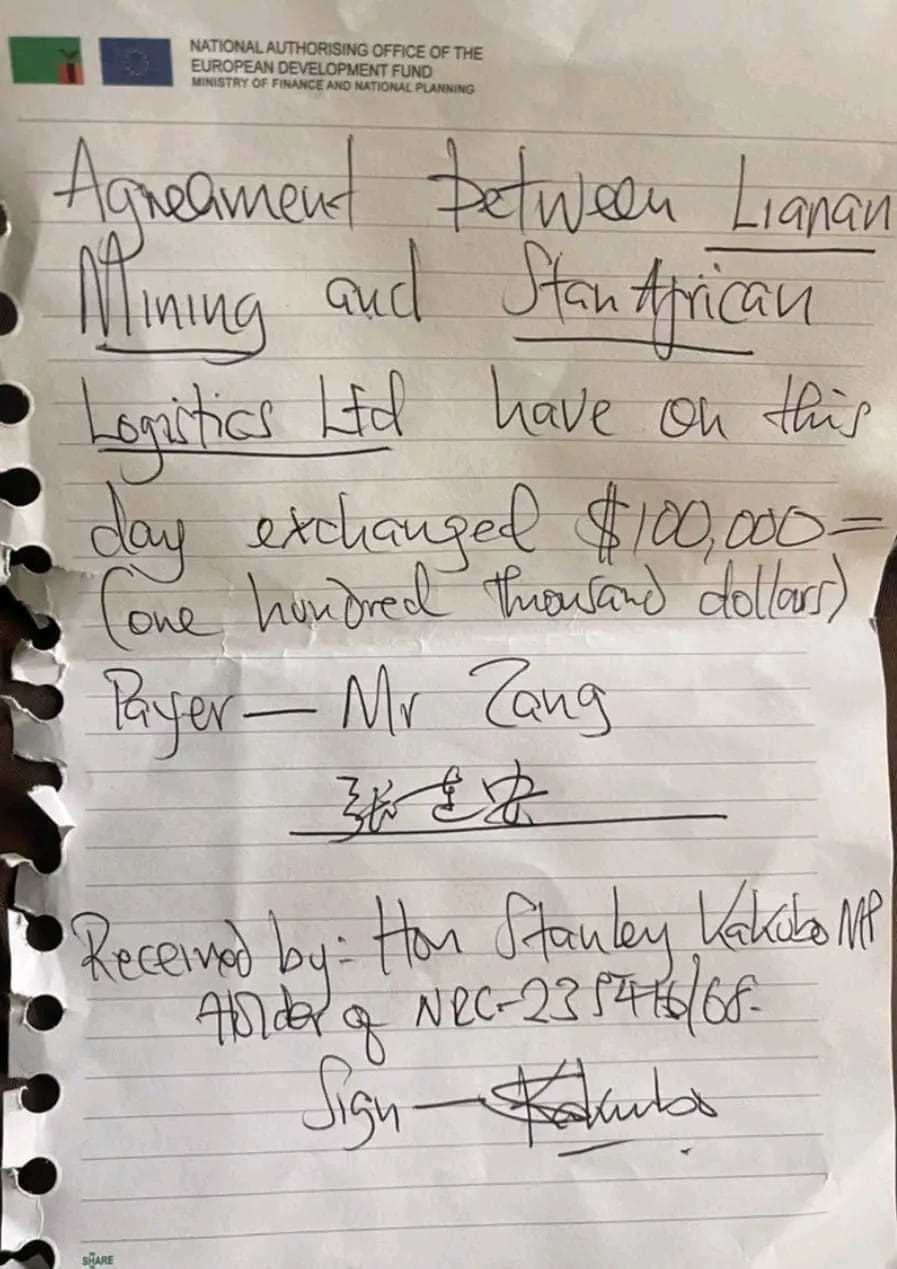 NATIONAL AUTHORISING OFFICE OF THE
EUROPEAN DEVELOPMENT FUND
MINISTRY OF FINANCE AND NATIONAL PLANNING
Agreament between Lianan
Mining and Stan African
Logistics Ltd have on this
day exchanged $100,000=
(one hundred thousand dollars)
Payer — Mr Zang
张
Received by:- Hon Stanley Kakubo MP
of NRC-
Sign — Kakubo
SHARE